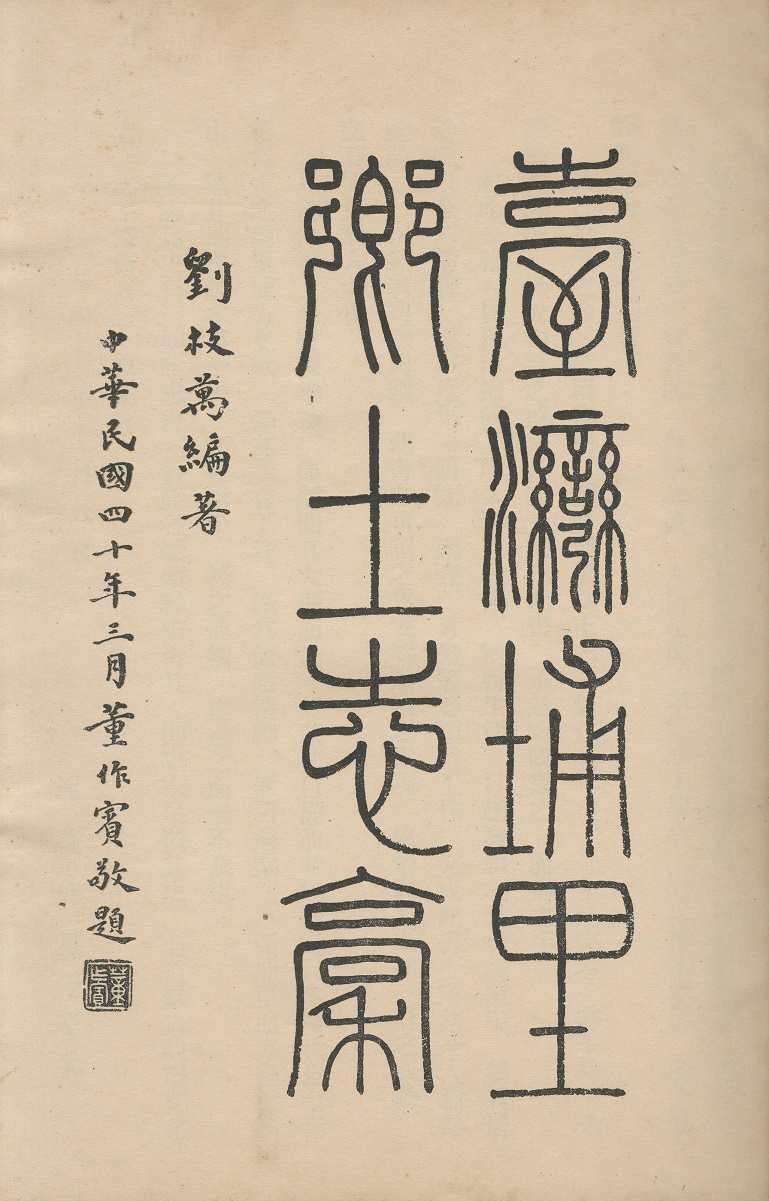 臺灣埔里
鄉土志稾
劉枝萬編著
中華民國四十年三月董作賓敬題